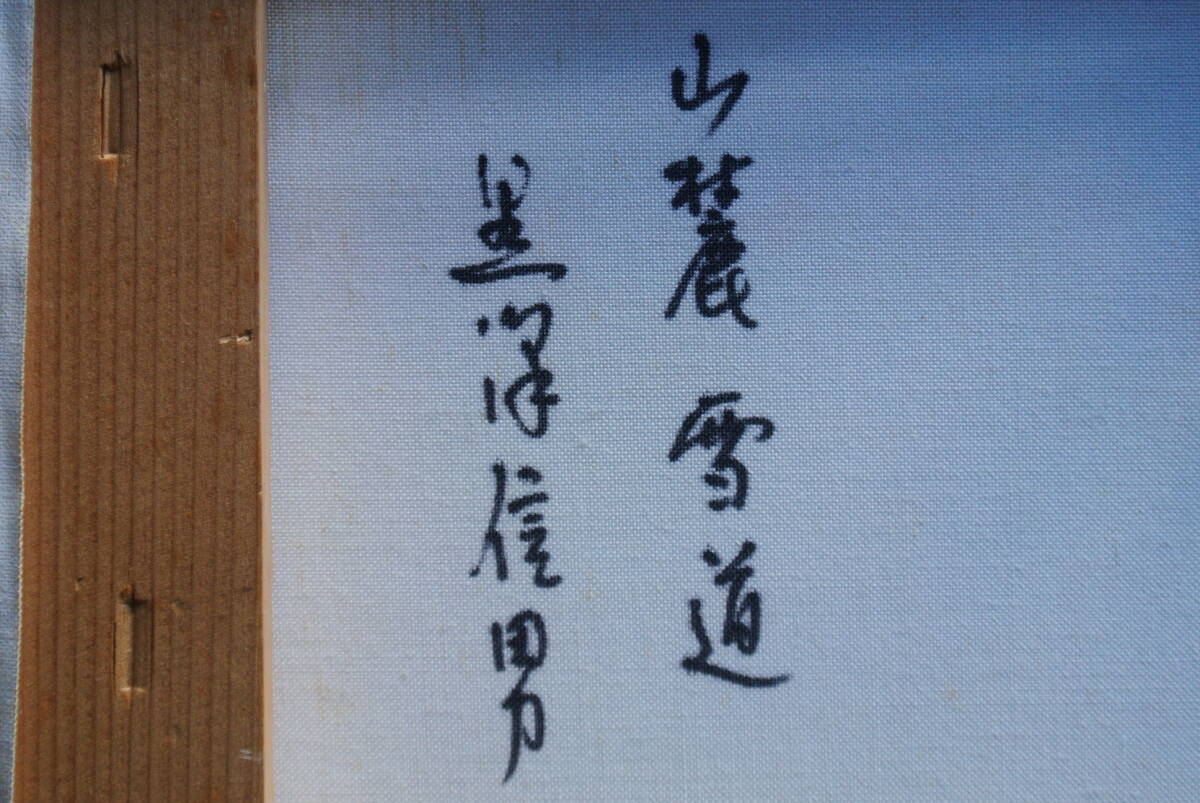 山麓 雪道
黒澤信男